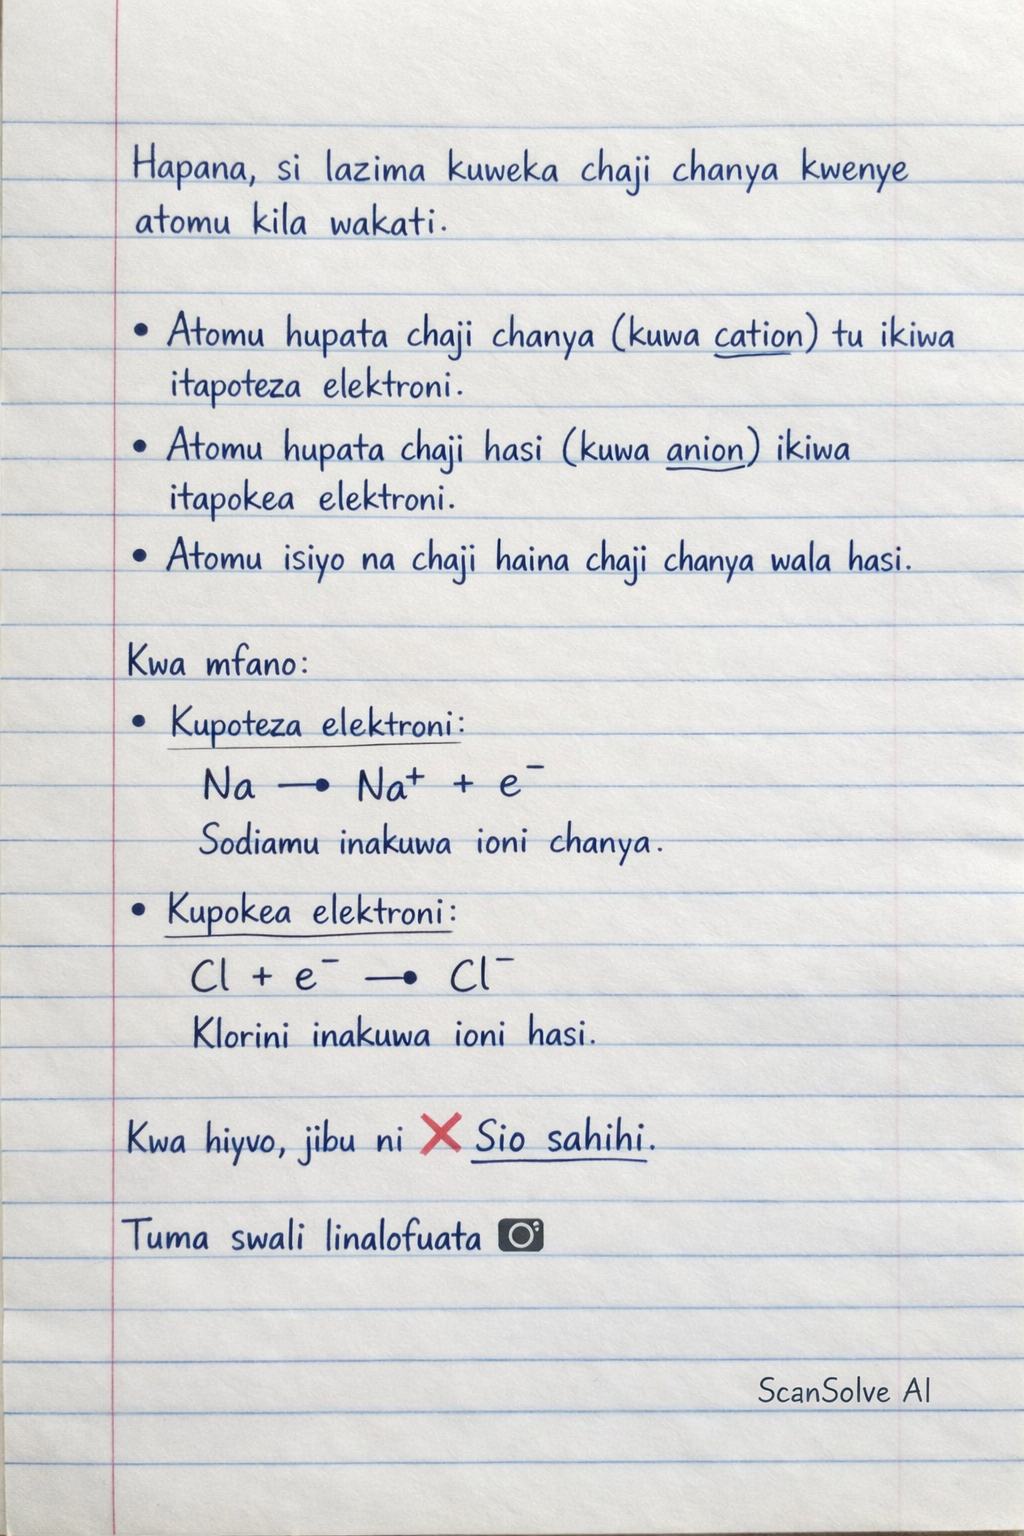 Hapana, si lazima kuweka chaji chanya kwenye
atomu kila wakati.
• Atomu hupata chaji chanya (kuwa cation) tu ikiwa
itapoteza elektroni.
• Atomu hupata chaji hasi (kuwa anion) ikiwa
itapokea elektroni.
• Atomu isiyo na chaji haina chaji chanya wala hasi.
Kwa mfano:
• Kupoteza elektroni:
Na → Na⁺ + e⁻
Sodiamu inakuwa ioni chanya.
• Kupokea elektroni:
Cl + e⁻ → Cl⁻
Klorini inakuwa ioni hasi.
Kwa hiyvo, jibu ni ❌ Sio sahihi.
Tuma swali linalofuata 📷
ScanSolve AI